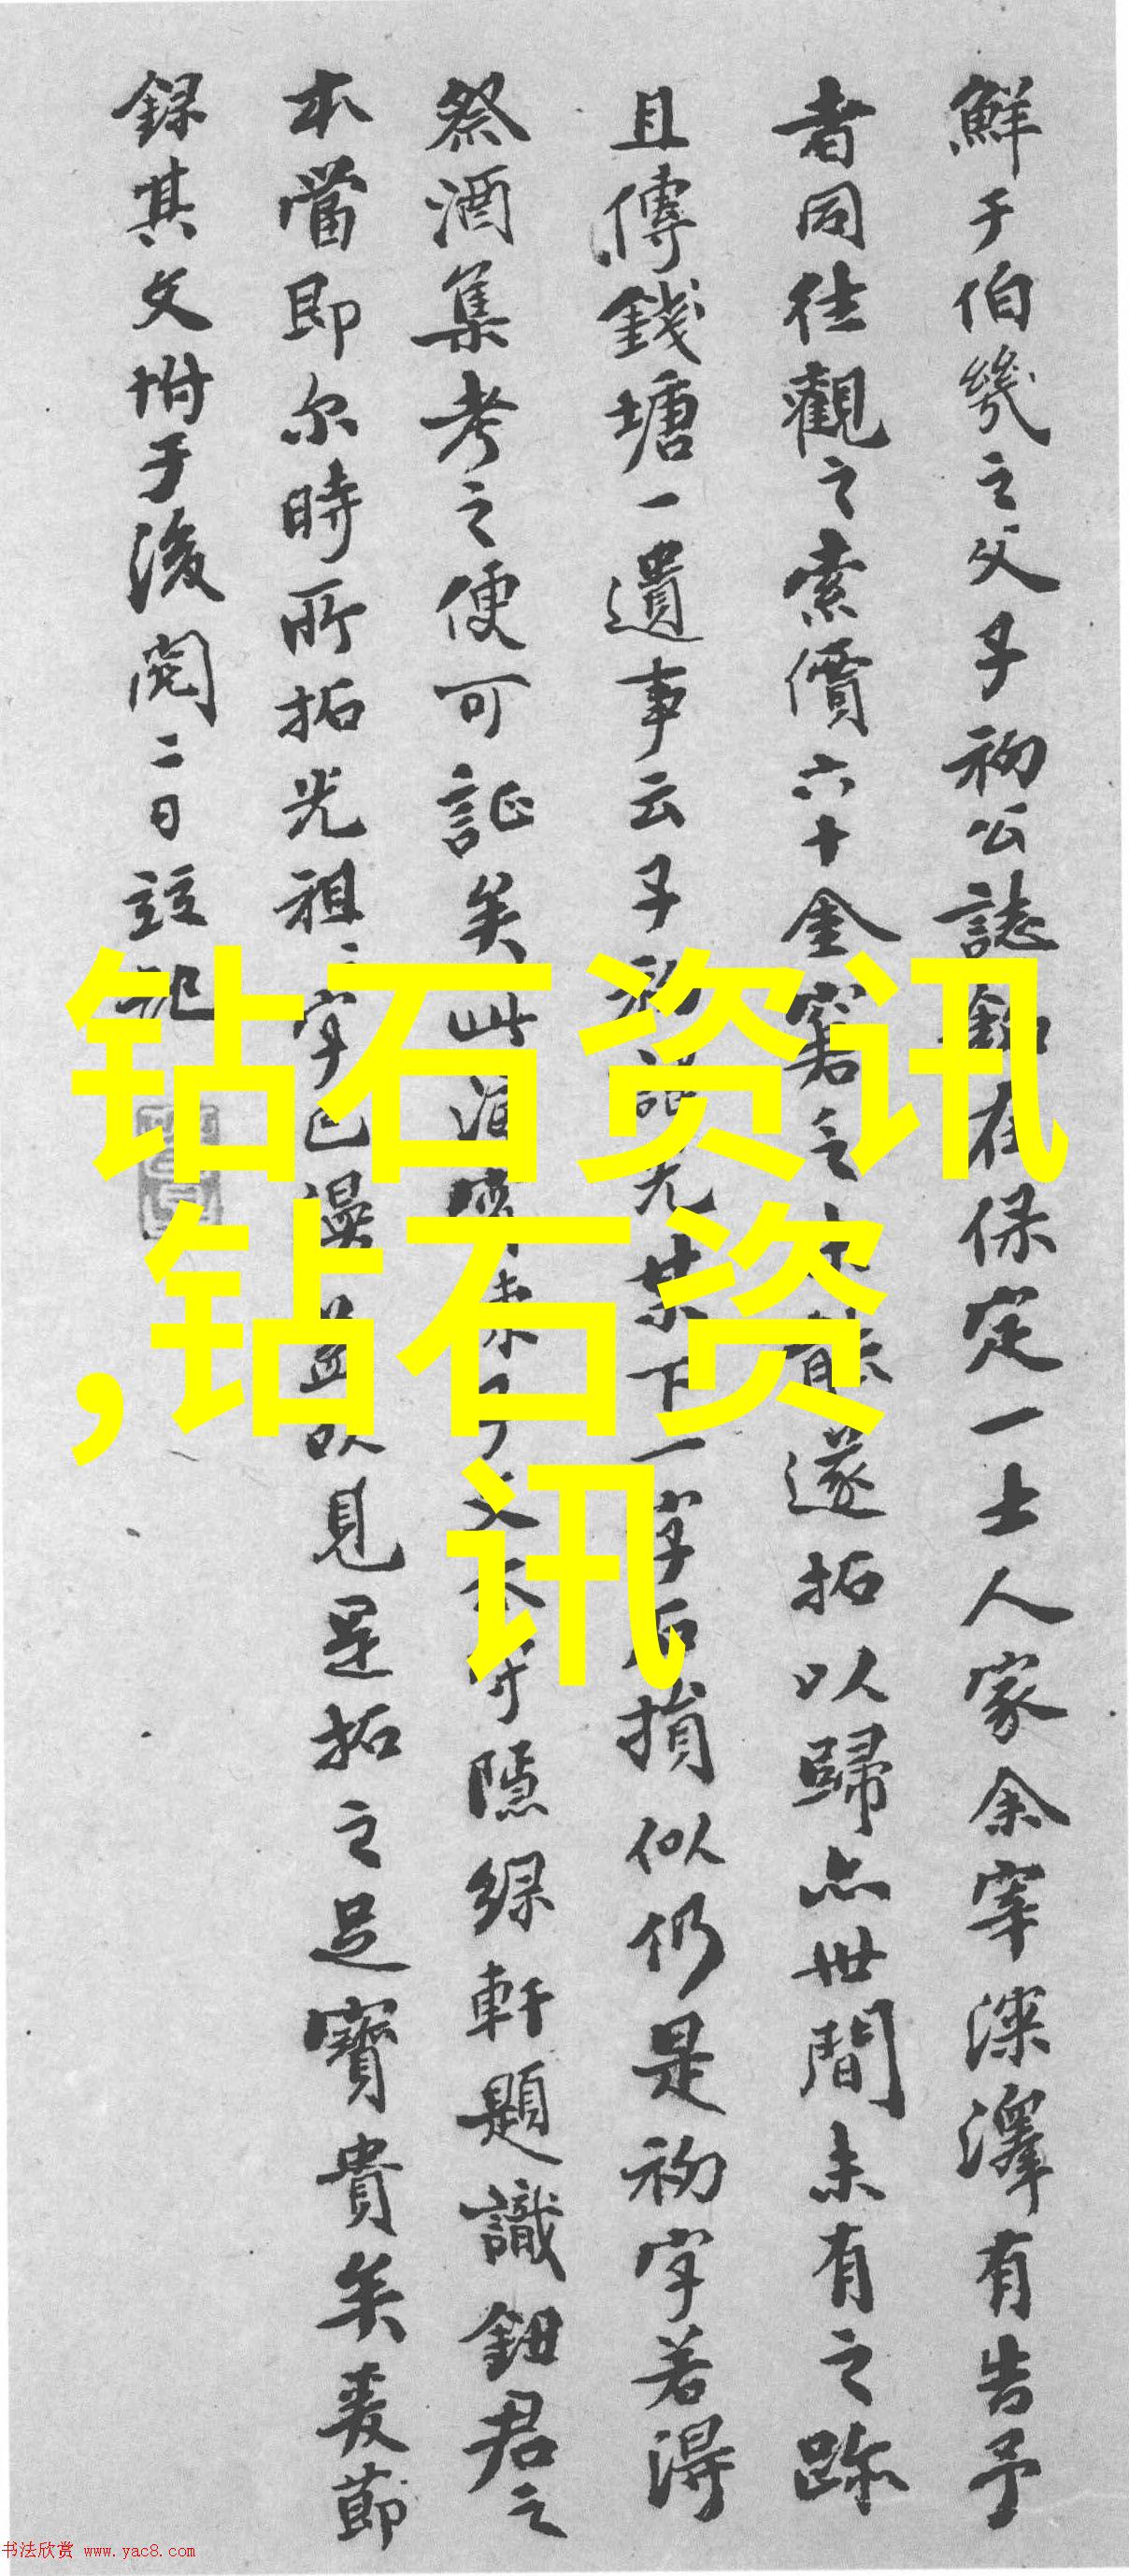 鮮于伯幾之父子初公誌銘在保定一士人家余宰深澤有告予
者同往觀之索價六十金窘之未能遂拓以歸亦世間未有之跡
且傳錢塘一遺事云子初諱光某下一字石損似仍是初字若得
祭酒集考之便可証矣此濟來子文本 隱綠軒題識鈕君之
本當即尔時所拓光祖二字已漫 以見是拓之足寶貴矣爰節
錄其文坿于後閱二日 記
钻石资讯
,钻石资
讯
书法欣赏 www.yac8.com